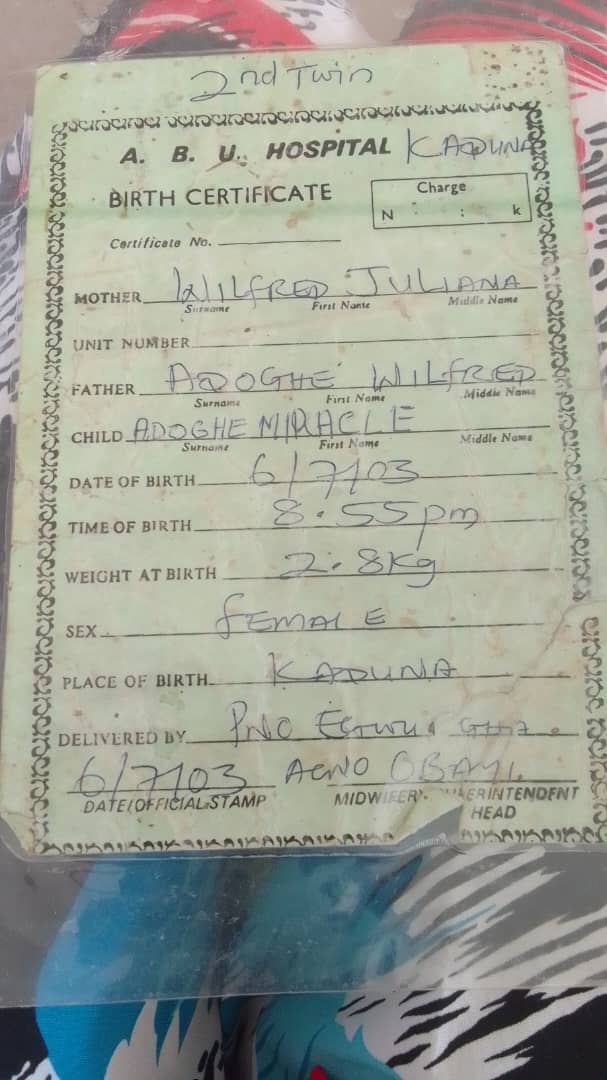 2nd Twin
A. B. U. HOSPITAL KADUNA
BIRTH CERTIFICATE
Charge
N : : k
Certificate No.
MOTHER WILFRED JULIANA
Surname First Name Middle Name
UNIT NUMBER
FATHER ADOGHE WILFRED
Surname First Name Middle Name
CHILD ADOGHE MIRACLE
Surname First Name Middle Name
DATE OF BIRTH 6/7/03
TIME OF BIRTH 8.55pm
WEIGHT AT BIRTH 2.8kg
SEX FEMALE
PLACE OF BIRTH KADUNA
DELIVERED BY PNO
6/7/03 ACNO OBAYI
DATE/OFFICIAL STAMP
HEAD